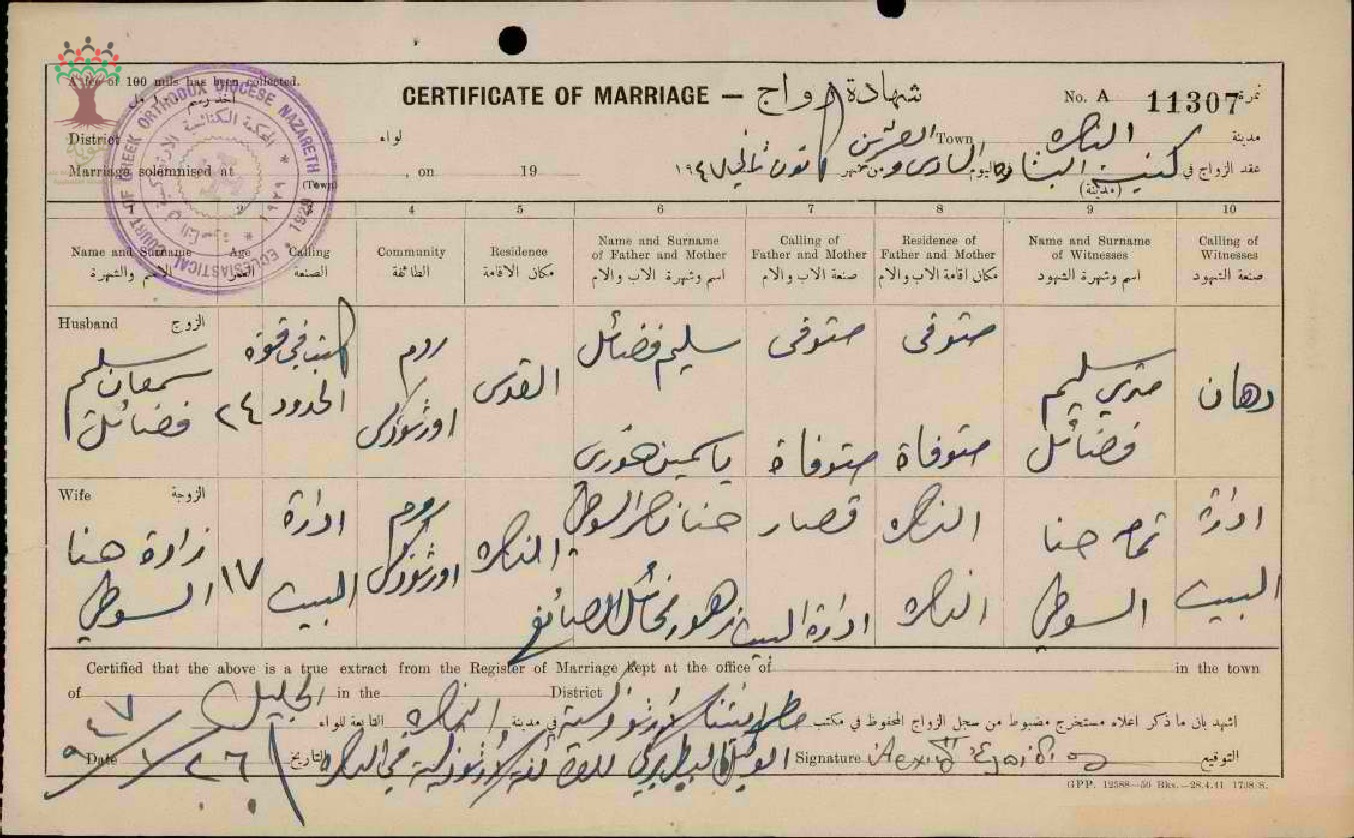 A fee of 100 mils has been collected.
CERTIFICATE OF MARRIAGE — شهادة زواج
No. A 11307 نمرة
District لواء
Town الناصرة مدينة
Marriage solemnised at (Town) , on 19
عقد الزواج في كنيسة البشارة (مدينة) اليوم السادس والعشرين من شهر كانون ثاني ١٩٤٧
COURT OF GREEK ORTHODOX DIOCESE NAZARETH * 1929 * ECCLESIASTICAL
2 4 5 6 7 8 9 10
Name and Surname الاسم والشهرة
Age العمر
Calling الصنعة
Community الطائفة
Residence مكان الاقامة
Name and Surname of Father and Mother اسم وشهرة الاب والام
Calling of Father and Mother صنعة الاب والام
Residence of Father and Mother مكان اقامة الاب والام
Name and Surname of Witnesses اسم وشهرة الشهود
Calling of Witnesses صنعة الشهود
Husband الزوج
سمعان سليم فضائل
٢٤
كاتب في قوة الحدود
روم اورثوذكس
القدس
سليم فضائل
ياسمين خوري
متوفى
متوفاة
متوفى
متوفاة
متري سليم فضائل
دهان
Wife الزوجة
زادة حنا السوطي
١٧
ادارة البيت
روم اورثوذكس
الناصرة
حنا ناصر السوطي
زهور مخائيل الصائغ
قصار
ادارة البيت
الناصرة
الناصرة
تمام حنا السوطي
ادارة البيت
Certified that the above is a true extract from the Register of Marriage kept at the office of in the town
of in the District
اشهد بان ما ذكر اعلاه مستخرج مضبوط من سجل الزواج المحفوظ في مكتب في مدينة الناصرة التابعة للواء الجليل
Date ٢٦/١/٩٤٧ التاريخ
الوكيل البطريركي للطائفة الارثوذكسية في الناصرة
Signature التوقيع
GPP. 12588—50 Bks.—28.4.41 1738/S.